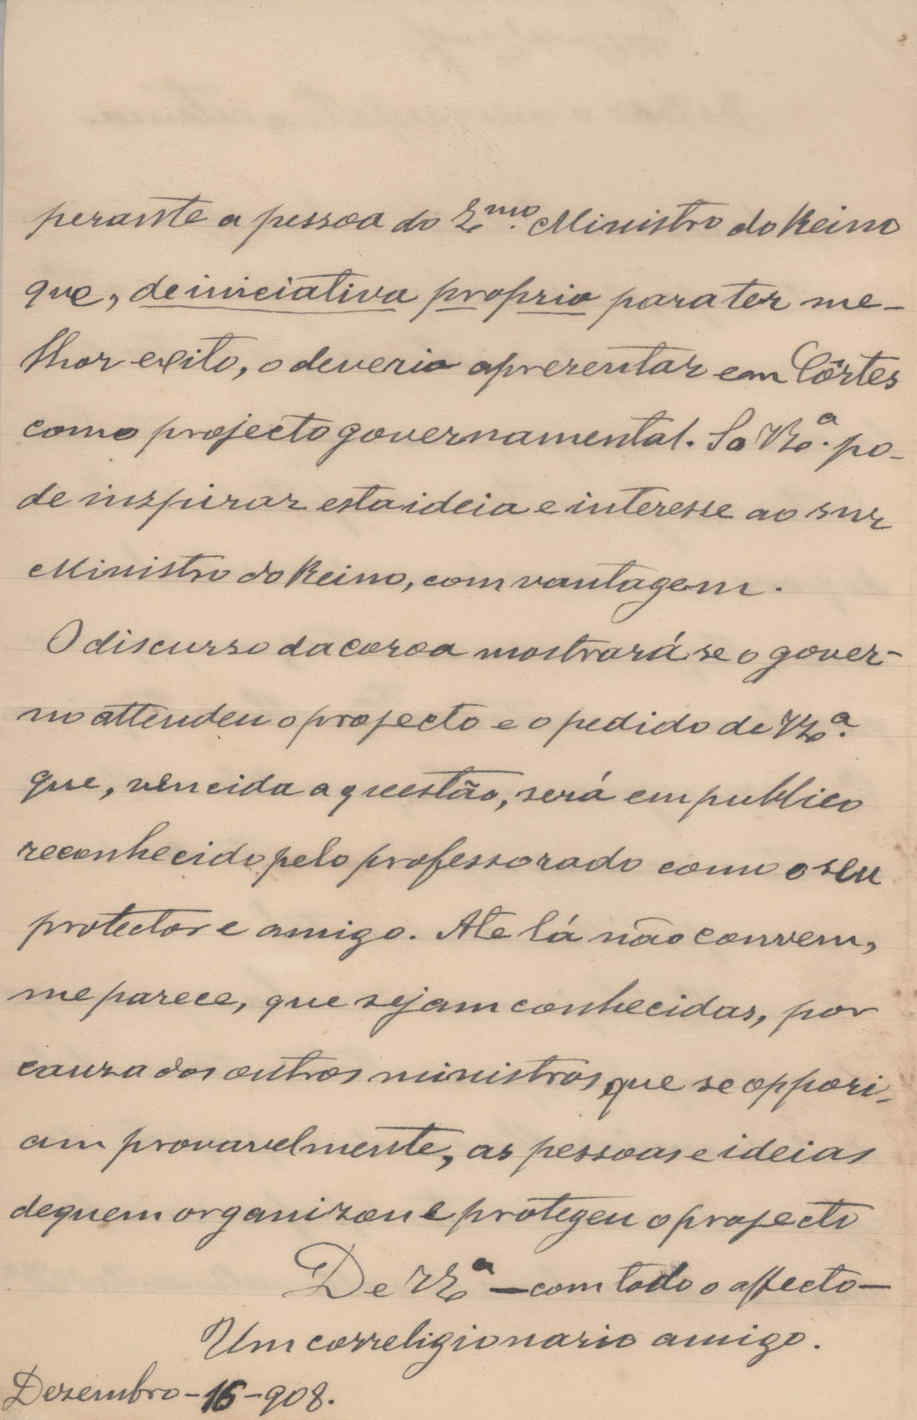 perante a pessoa do E.mo Ministro do Reino
que, de iniciativa propria para ter me-
lhor exito, o deveria aprezentar em Côrtes
como projecto governamental. So VEª. po-
de inspirar esta ideia e interesse ao snr
Ministro do Reino, com vantagem.
O discurso da coroa mostrará se o gover-
no attendeu o projecto e o pedido de VEª.
que, vencida a questão, será em publico
reconhecido pelo professorado como o seu
protector e amigo. Ate lá não convem,
me parece, que sejam conhecidas, por
cauza dos outros ministros que se oppori-
am provavelmente, as pessoas e ideias
de quem organizou e protegeu o projecto
De VEª — com todo o affecto —
Um correligionario amigo.
Dezembro - 16 - 908.